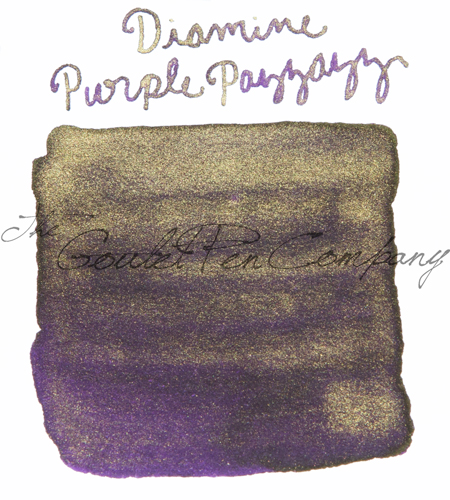 Diamine
Purple Pazzazz
The Goulet Pen Company